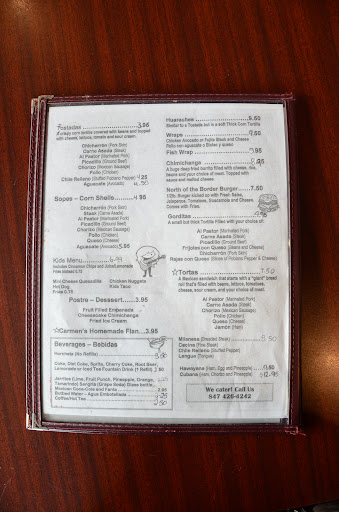 Tostadas 3.95
A crispy corn tortilla covered with beans and topped
with cheese, lettuce, tomato and sour cream.
Chicharrón (Pork Skin)
Carne Asada (Steak)
Al Pastor (Marinated Pork)
Picadillo (Ground Beef)
Chorizo (Mexican Sausage)
Pollo (Chicken)
Chile Relleno (Stuffed Poblano Pepper) 4.25
Aguacate (Avocado)
Sopes – Corn Shells 3.95
Chicharrón (Pork Skin)
Steak (Carne Asada)
Al Pastor (Marinated Pork)
Picadillo (Ground Beef)
Chorizo (Mexican Sausage)
Pollo (Chicken)
Queso (Cheese)
Aguacate (Avocado)
Kids Menu
Includes Cinnamon Chips and Juice/Lemonade
Fries 0.75
Mini Cheese Quesadilla Chicken Nuggets
Hot Dog Kids Taco
Postre – Dessert 3.95
Fruit Filled Empanada
Cheesecake Chimichanga
Fried Ice Cream
☆Carmen's Homemade Flan...3.95
Beverages – Bebidas
Horchata (No Refills)
Coke, Diet Coke, Sprite, Cherry Coke, Root Beer,
Lemonade or Iced Tea Fountain Drink (1 Refill)
Jarritos (Lime, Fruit Punch, Pineapple, Orange,
Tamarindo) Sangria (Grape Soda) Glass bottle,
Mexican Coca-Cola and Fanta
Bottled Water – Agua Embotellada
Coffee/Hot Tea
Huaraches 9.50
Similar to a Tostada but in a soft Thick Corn Tortilla
Wraps 9.50
Chicken Avocado or Fajita Steak and Cheese
Pollo con aguacate o Bistec y queso
Fish Wrap 9.95
Chimichanga
A huge deep fried burrito filled with cheese, rice,
beans and your choice of meat. Topped with
sauce and melted cheese.
North of the Border Burger 7.50
1/2lb. Burger kicked up with Fresh Salsa,
Jalapenos, Tomatoes, Guacamole and Cheese.
Comes with Fries.
Gorditas
A small but thick Tortilla Filled with your choice of:
Al Pastor (Marinated Pork)
Carne Asada (Steak)
Picadillo (Ground Beef)
Frijoles con Queso (Beans and Cheese)
Chicharrón (Pork Skin)
Rajas con Queso (Slices of Poblano Pepper & Cheese)
☆Tortas 7.50
A Mexican sandwich that starts with a "giant" bread
roll that's filled with beans, lettuce, tomatoes,
cheese, sour cream, and your choice of meat.
Al Pastor (Marinated Pork)
Carne Asada (Steak)
Chorizo (Mexican Sausage)
Pollo (Chicken)
Queso (Cheese)
Jamón (Ham)
Milanesa (Breaded Steak) 8.50
Cecina (Fine Steak)
Chile Relleno (Stuffed Pepper)
Lengua (Tongue)
Hawaiyana (Ham, Egg and Pineapple)
Cubana (Ham, Chorizo and Pineapple) $12.95
We cater! Call Us
847 426-4242